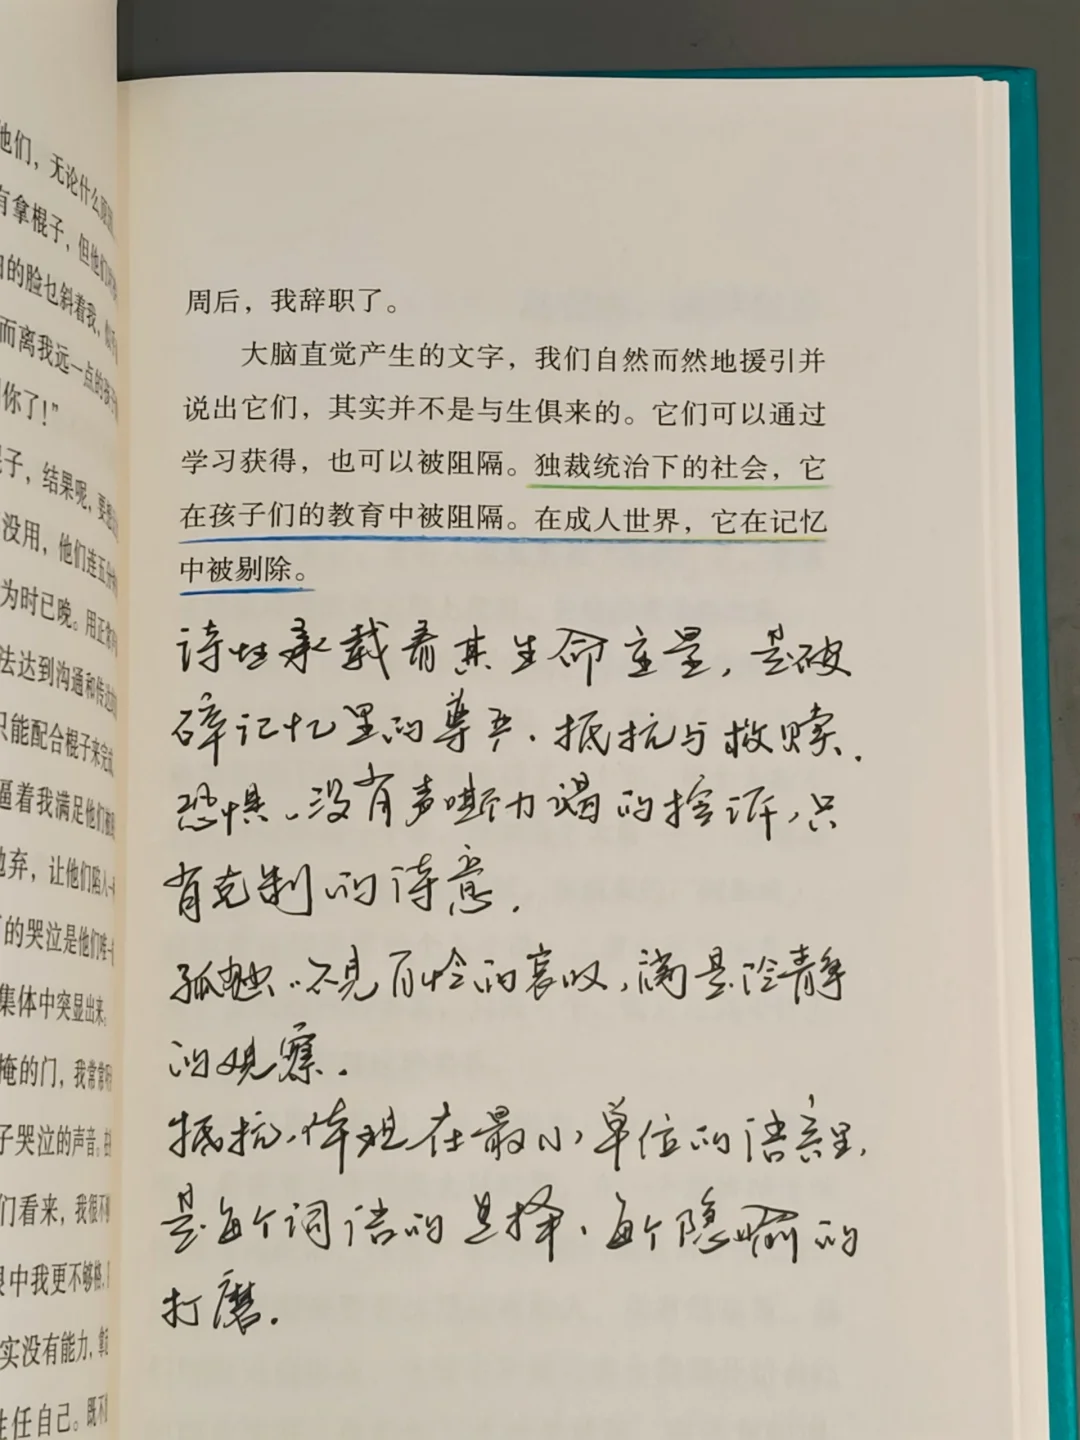 他们，无论什么
有拿棍子，但他们
的脸也斜着我，
而离我远一点的孩子
你了！”
子，结果呢，要想
没用，他们连五分
为时已晚。用正常
法达到沟通和传达
只能配合棍子来完成
逼着我满足他们
地弃，让他们陷入一
的哭泣是他们唯一
集体中突显出来。
掩的门，我常常
子哭泣的声音。在
们看来，我很不
眼中我更不够格，
实没有能力，
生任自己。既不
周后，我辞职了。
大脑直觉产生的文字，我们自然而然地援引并
说出它们，其实并不是与生俱来的。它们可以通过
学习获得，也可以被阻隔。独裁统治下的社会，它
在孩子们的教育中被阻隔。在成人世界，它在记忆
中被剔除。
诗性承载着其生命重量，是破
碎记忆里的尊严、抵抗与救赎.
恐惧、没有声嘶力竭的控诉，只
有克制的诗意.
孤独..不见自怜的哀叹，满是冷静
的观察.
抵抗、体现在最小单位的语言里，
是每个词语的选择、每个隐喻的
打磨.